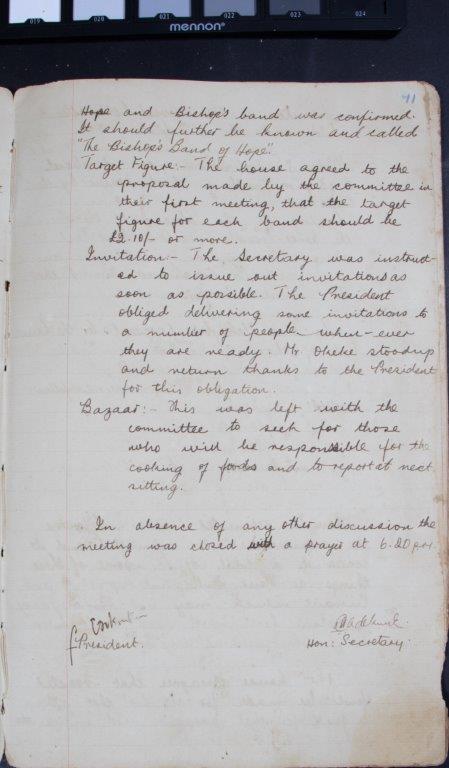 019 020 021 022 023 024
mennon
41
Hope and Bishop's band was confirmed.
It should further be known and called
"The Bishop's Band of Hope".
Target Figure:- The house agreed to the
proposal made by the committee in
their first meeting, that the target
figure for each band should be
£2.10/- or more.
Invitation:- The Secretary was instruct-
ed to issue out invitations as
soon as possible. The President
obliged delivering some invitations to
a number of people when-ever
they are ready. Mr Oheke stoodup
and return thanks to the President
for this obligation.
Bazaar:- This was left with the
committee to seek for those
who will be responsible for the
cooking of foods and to report at next
sitting.
In absence of any other discussion the
meeting was closed with a prayer at 6.20 p.m.
President.
Hon: Secretary.